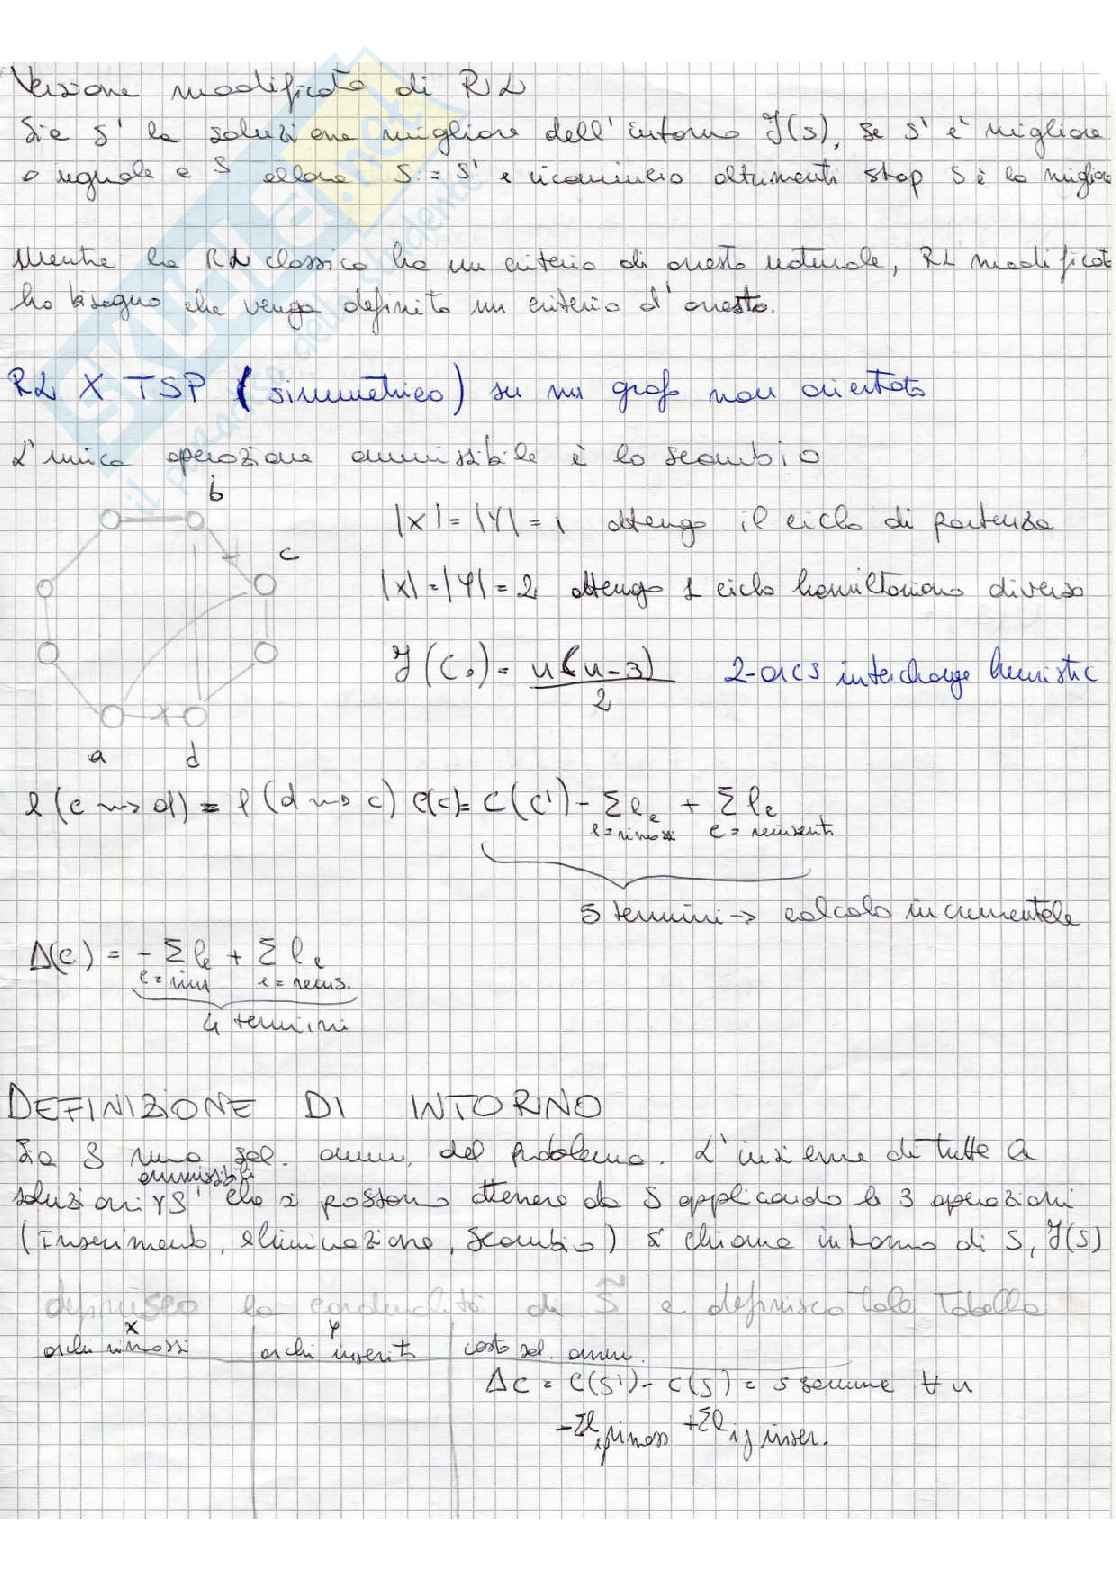 Versione modificata di RL
Sia S' la soluzione migliore dell'intorno J(s), se S' è migliore
o uguale a S allora S := S' e ricomincio altrimenti stop S è la migliore
Mentre la RL classica ha un criterio di arresto naturale, RL modificata
ha bisogno che venga definito un criterio d'arresto.
RL X TSP (simmetrico) su un grafo non orientato
L'unica operazione ammissibile è lo scambio
b
c
|X| = |Y| = 1 ottengo il ciclo di partenza
|X| = |Y| = 2 ottengo 1 ciclo hamiltoniano diverso
J(C₀) = n(n-3)/2 2-arcs interchange heuristic
a d
l(c ⇝ d) = l(d ⇝ c) C(c) = C(C') - Σ lₑ + Σ lₑ
e = rimossi e = reinseriti
5 termini → calcolo incrementale
Δ(C) = - Σ lₑ + Σ lₑ
e = rim e = reins.
4 termini
DEFINIZIONE DI INTORNO
Sia S una sol. amm. del problema. L'insieme di tutte le
ammissibili
soluzioni ∀S' che si possono ottenere da S applicando le 3 operazioni
(Inserimento, eliminazione, scambio) si chiama intorno di S, J(S)
definisco la cardinalità di S̃ e definisco tale Tabella
X Y
archi rimossi archi inseriti costo sol. amm.
ΔC = C(S') - C(S) = 5 termine ∀ n
-Σl ij rimoss +Σl ij inser.